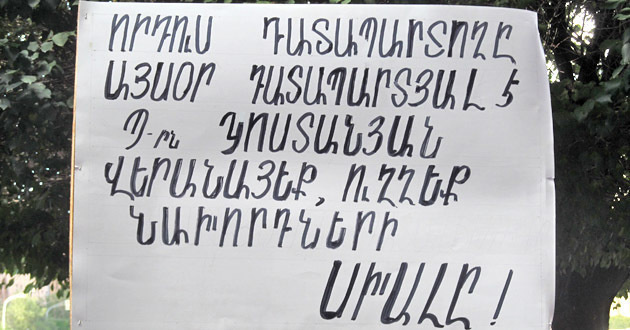 ՈՐԴՈՒՍ ԴԱՏԱՊԱՐՏՈՂԸ
ԱՅՍՕՐ ԴԱՏԱՊԱՐՏՅԱԼ Է
Պ-րն ԿՈՍՏԱՆՅԱՆ
ՎԵՐԱՆԱՅԵՔ, ՈՒՂՂԵՔ
ՆԱԽՈՐԴՆԵՐԻ
ՍԽԱԼԸ !